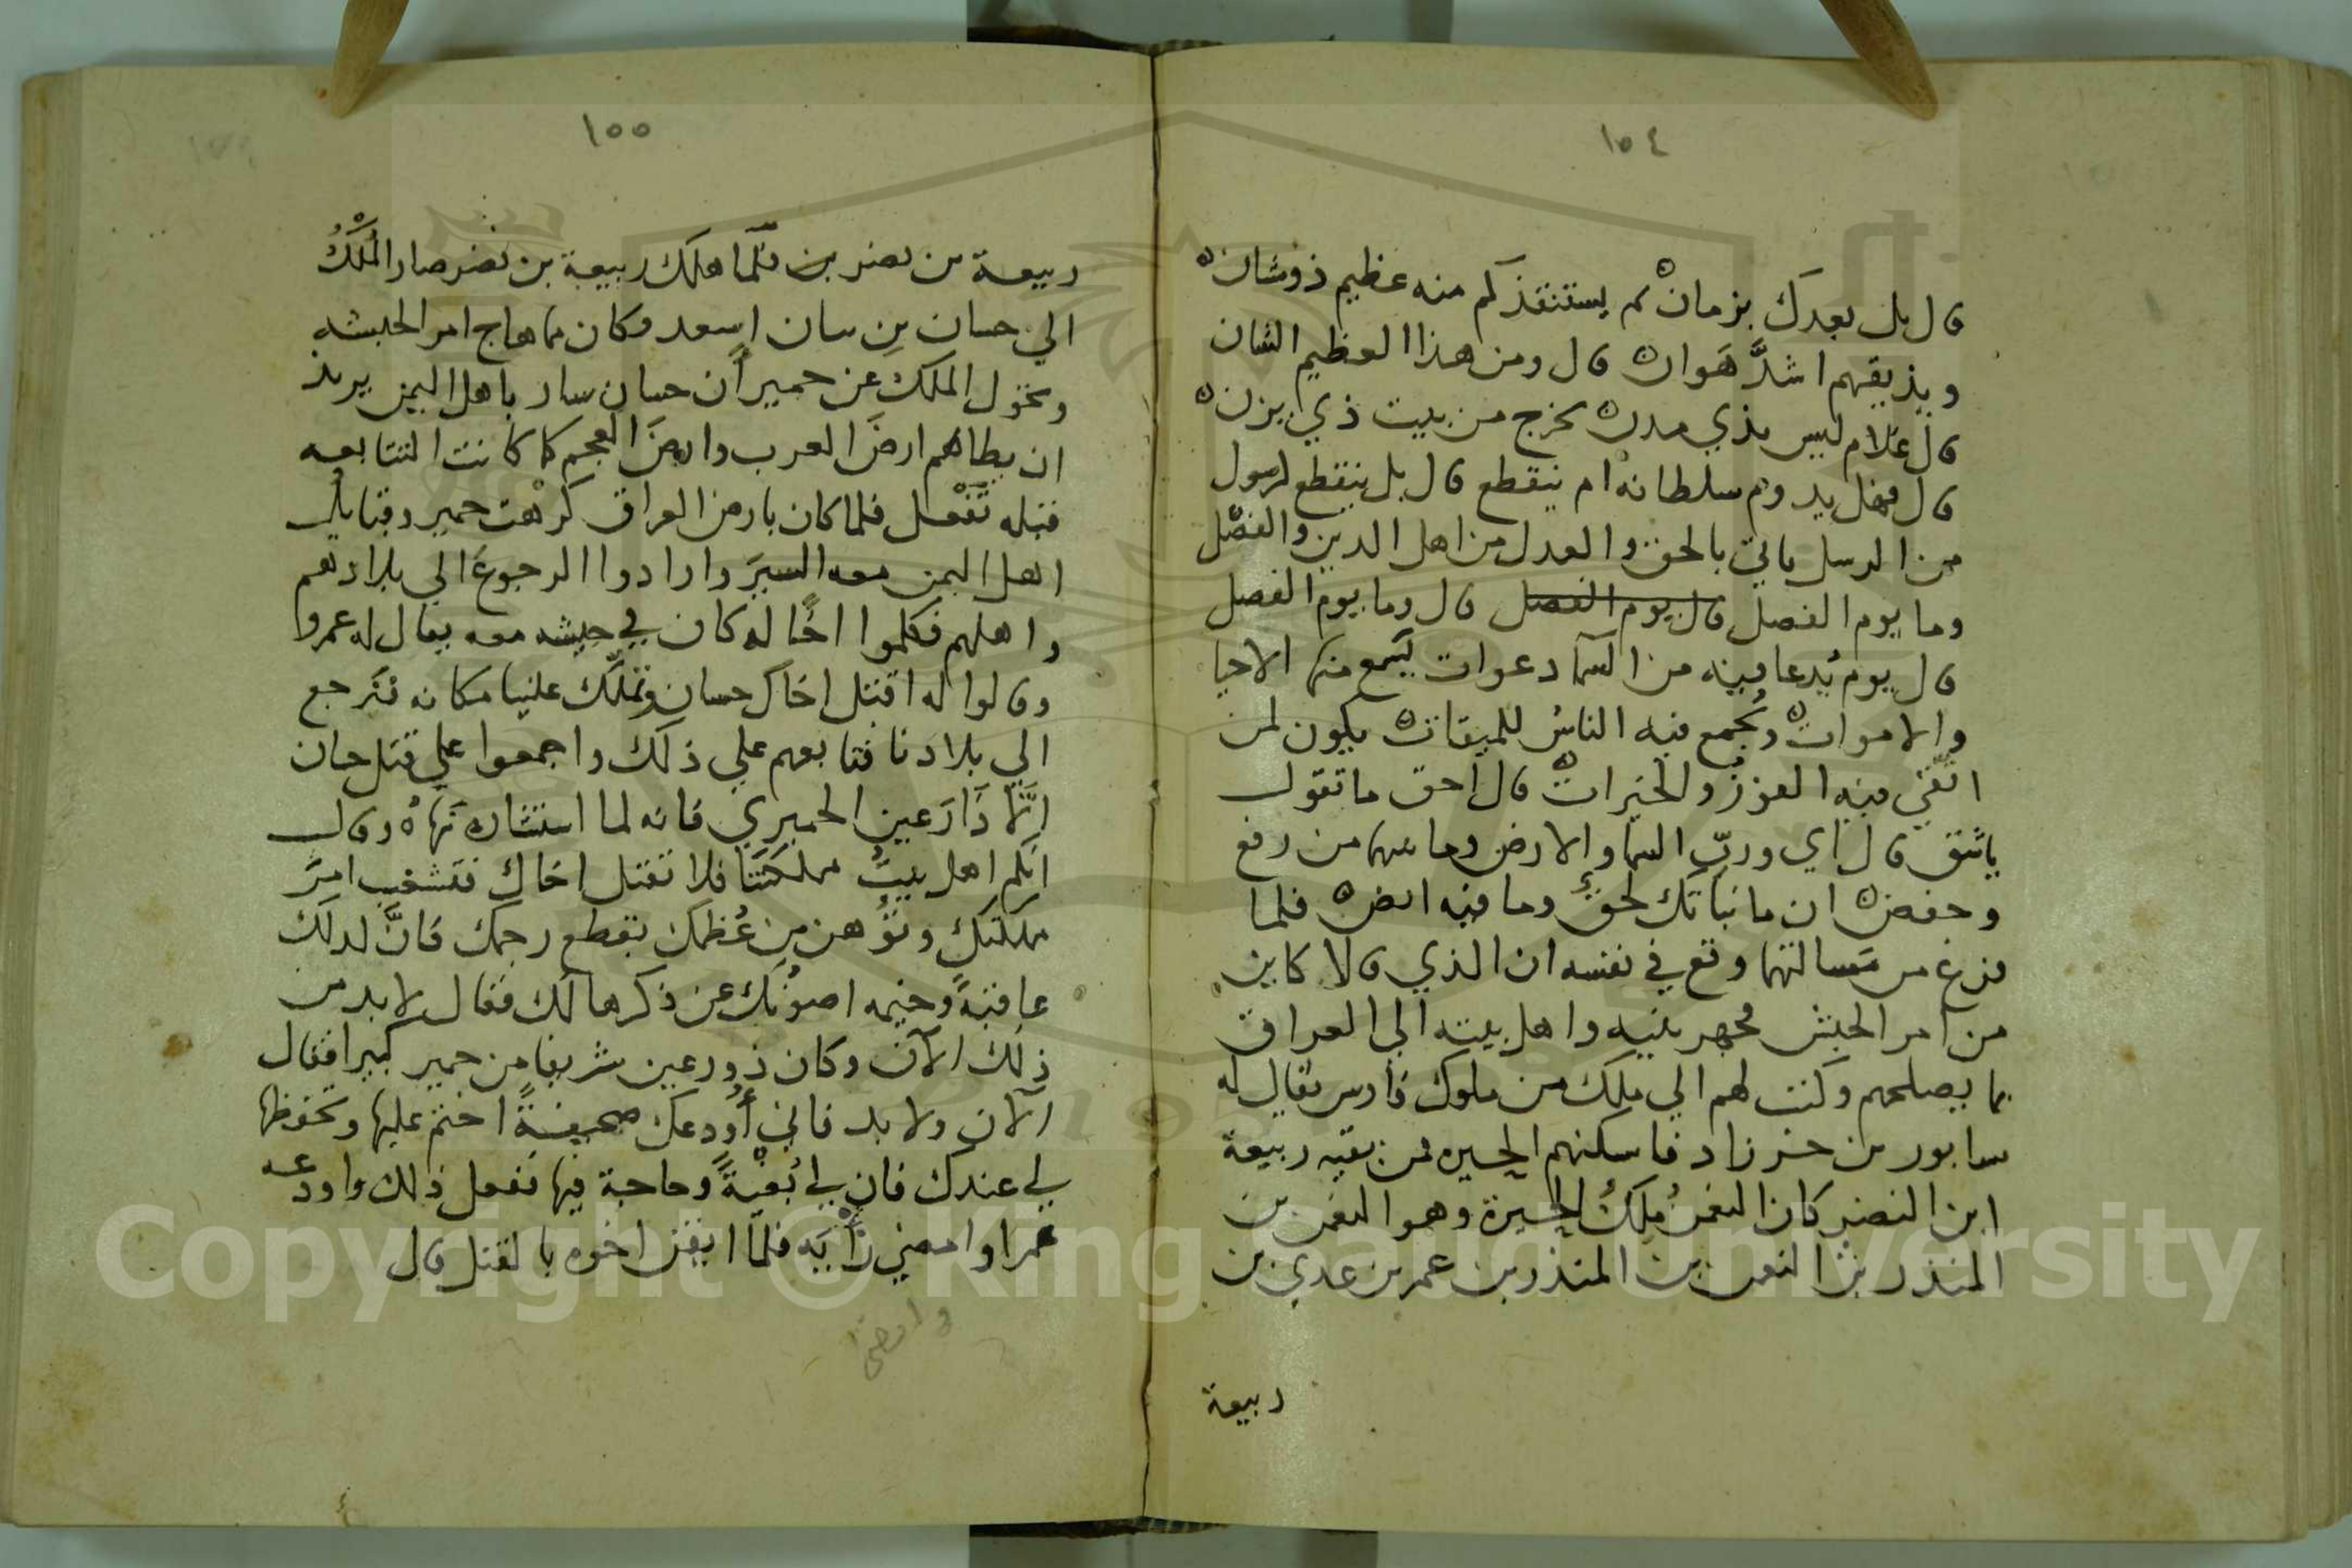 ١٥٤
قال بل بعدك بزمان ثم يستنقذكم منه عظيم ذوشان
ويذيقهم اشدَّ هَوان قال ومن هذا العظيم الشان
قال غلام ليس بذي مدن يخرج من بيت ذي يزن
قال فهل يدوم سلطانه ام ينقطع قال بل ينقطع لرسول
من الرسل ياتي بالحق والعدل من اهل الدين والفضل
وما يوم الفصل قال يوم الفصل قال وما يوم الفصل
قال يوم يُدعا فيه من السما دعوات يَسمع منها الاحيا
والاموات ويُجمع فيه الناسُ للميقات يكون لمن
اتقي فيه الفوزُ والخيرات قال احق ما تقول
ياشق قال اي وربّ السما والارض وما بينهما من رفع
وخفض ان ما نباتك لحقٌ وما فيه امض فلما
فرغ من مَسالتهما وقع في نفسه ان الذي قالا كاين
من امر الحبش فجهر بنيه واهل بيته الي العراق
بما يصلحهم وكتب لهم الي ملك من ملوك فارس يقال له
سابور بن خرزاد فاسكنهم الحيره فمن بقيه ربيعة
ابن النضر كان النعمنُ مَلِكُ الحيرة وهو النعمن بن
المنذر بن النعمن بن المنذر بن عمر بن عدي بن
ربيعة
١٥٥
ربيعة بن نصر بن فلَمّا هلك ربيعة بن نضر صار المُلْكُ
الي حسان بن سان اسعد وكان مما هاج امر الحبشه
وتحول الملك عن حمير أن حسان سار باهل اليمن يريد
ان يطا بهم ارضَ العرب وارضَ العجم كما كانت التتابعه
قبله تَفْعل فلما كان بارض العراق كرهت حمير وقبايل
اهل اليمن معه السيرَ وارادوا الرجوعَ الي بلادهم
واهلهم فكلموا اخًا له كان في جيشه معه يقال له عمروا
وقالوا له اقتل اخاك حسان وتملّك علينا مكانه فنرجع
الي بلادنا فتابعهم علي ذلك واجمعوا علي قتل حسان
الّا ذَا رَعين الحميري فانه لما استشاره نَهاهُ وقال
انكم اهل بيتُ مملكتنا فلا تقتل اخاك فتشغب امرَ
مملكتك وتُوهن من عُظمك بقطع رحمك فانَّ لذلك
عاقبةً وخيمه اصونُك عن ذكرها لك فقال لا بد من
ذلك الآن وكان ذورعين شريفا من حمير كبيرا فقال
الآن ولا بد فاني أُودعك صحيفةً اختم عليها وتحفوظها
لي عندك فان لي بُغيْةً وحاجة فيها ففعل ذلك واودعه
عمرا وامضي رأيَه فلمّا ايقن اخوه بالقتل قال
وامضى